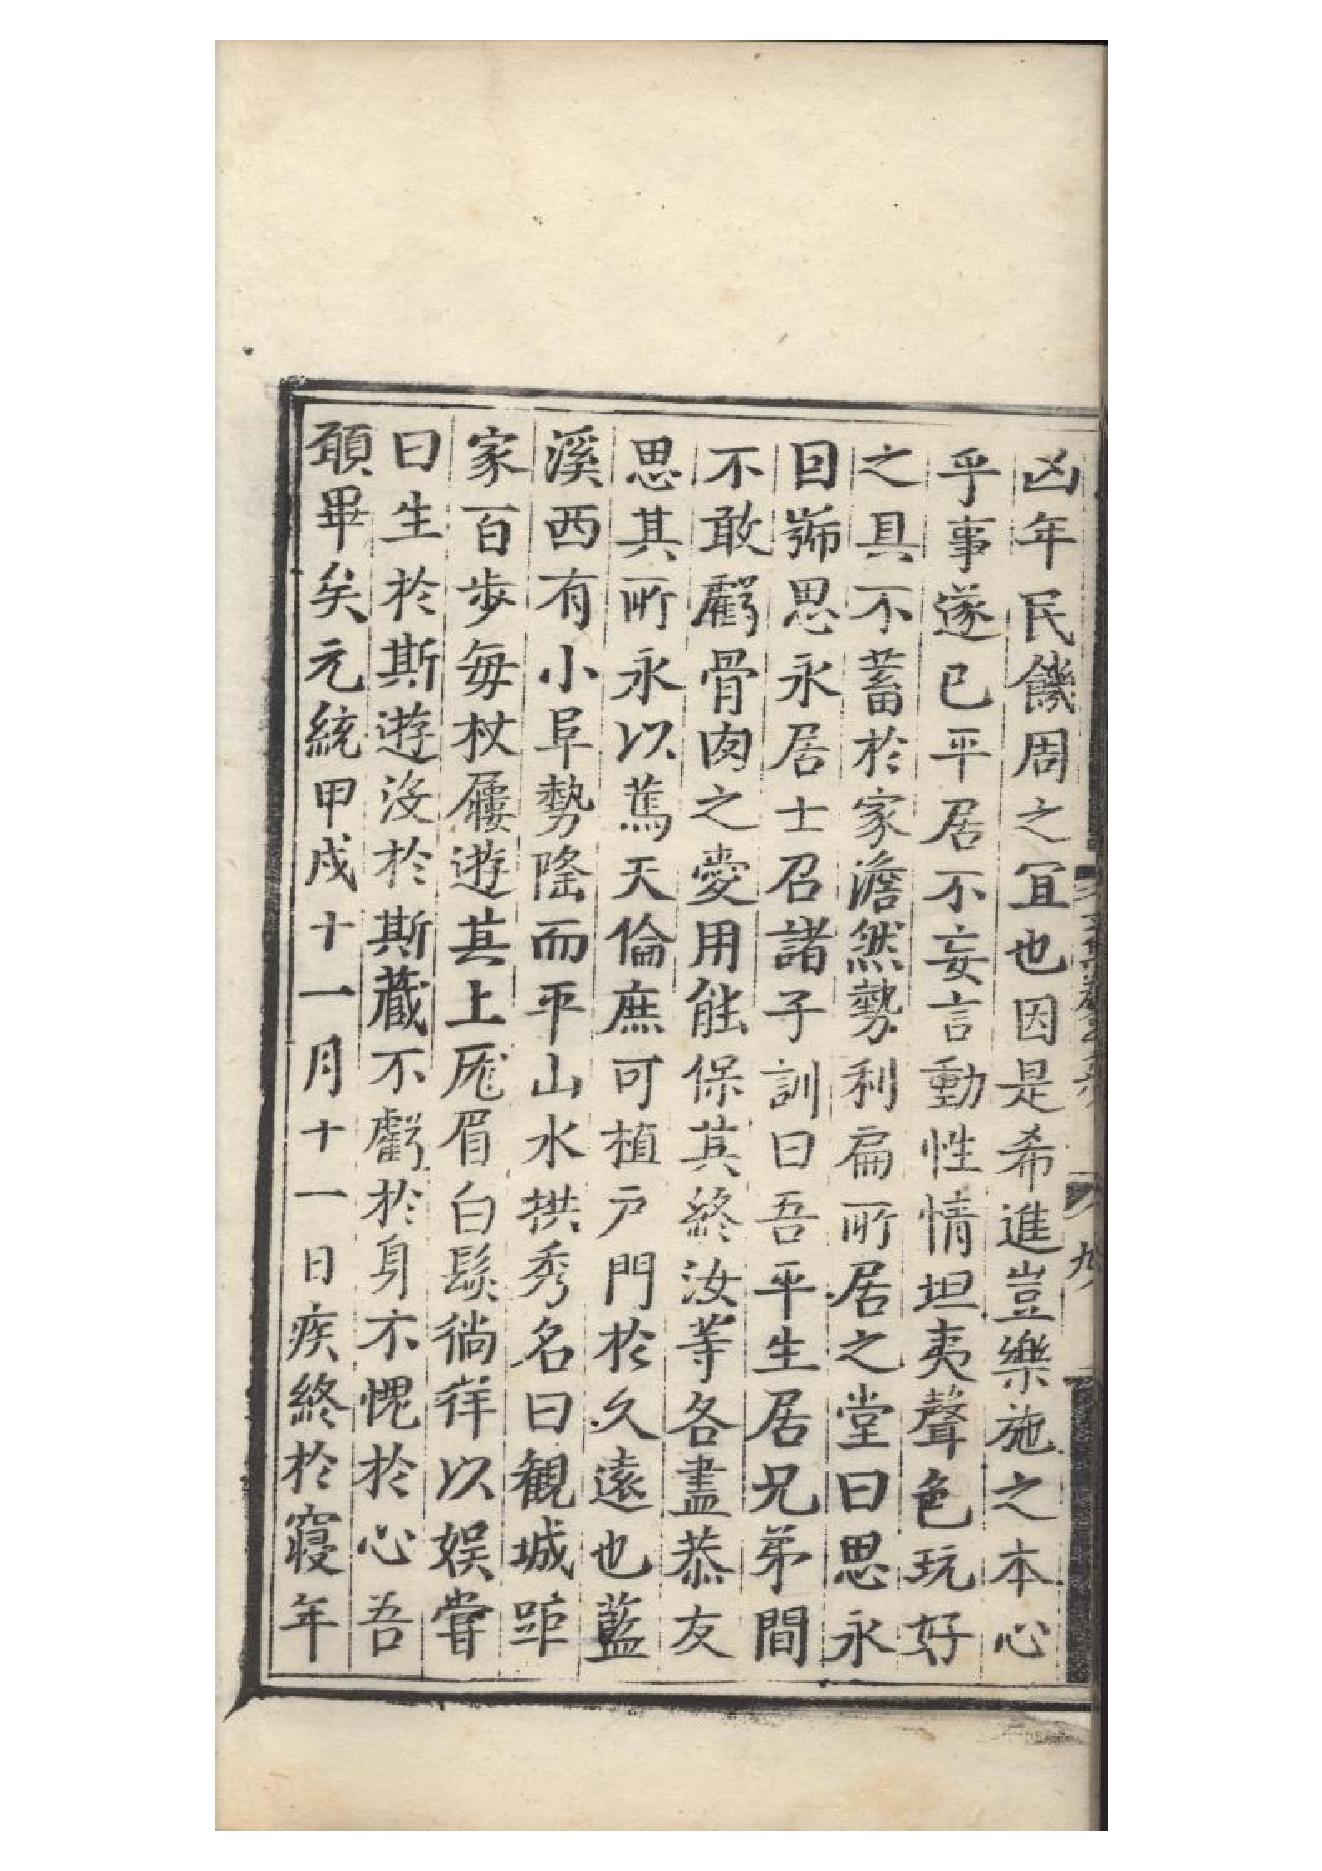 凶年民饑周之冝也因是希進豈樂施之本心
乎事遂已平居不妄言動性情坦夷聲色玩好
之具不蓄於家澹然勢利扁所居之堂曰思永
回號思永居士召諸子訓曰吾平生居兄弟間
不敢虧骨肉之愛用能保其終汝等各盡恭友
思其所永以蔿天倫庶可植戶門於久遠也藍
溪西有小阜勢隆而平山水拱秀名曰観城距
家百步每杖屨遊其上厖眉白鬚徜徉以娱嘗
曰生於斯遊沒於斯藏不虧於身不愧於心吾
願畢矣元統甲戍十一月十一日疾終於寢年